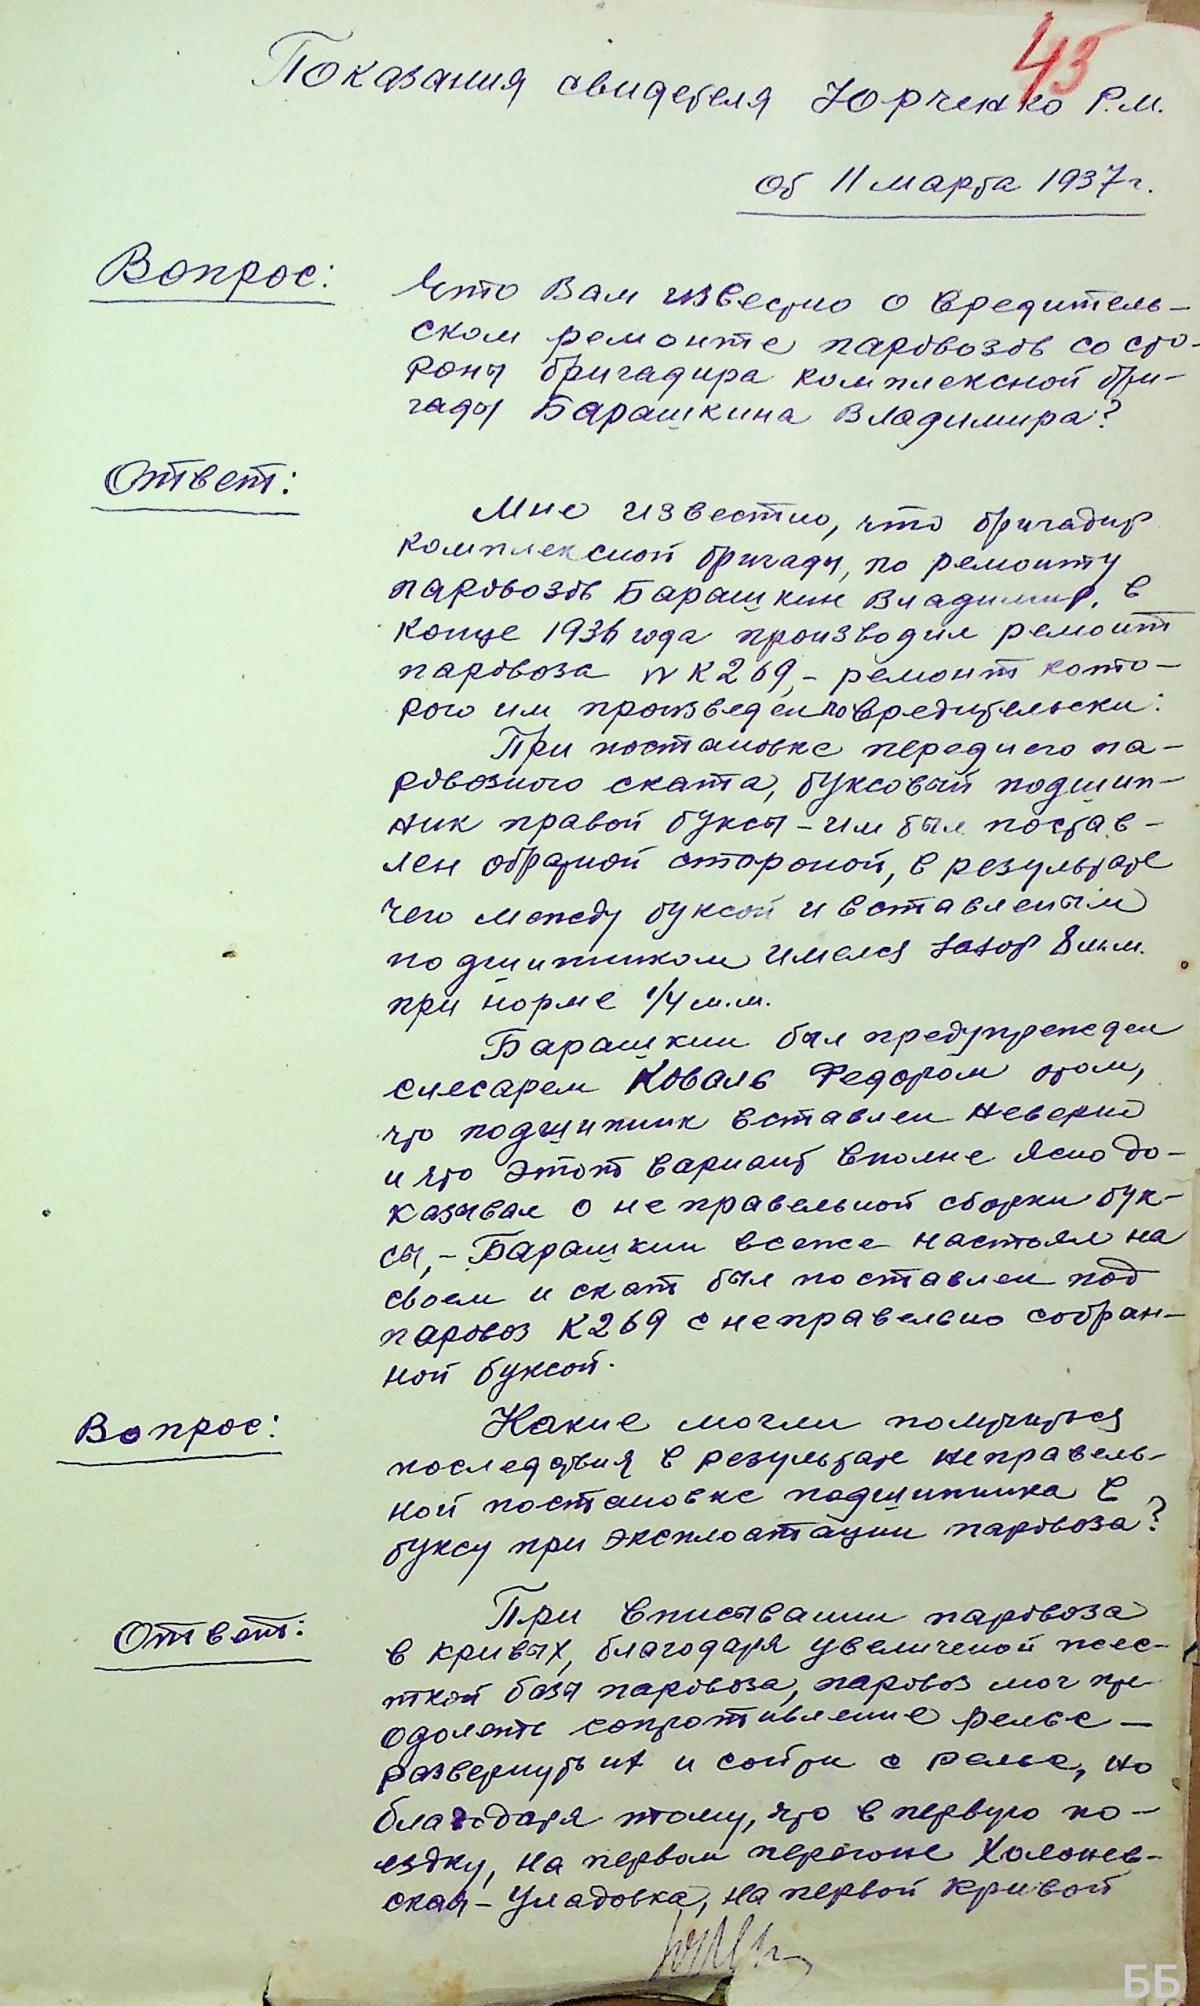 45
Показания свидетеля Юрченко Р.М.
от 11 марта 1937 г.
Вопрос: Что Вам известно о вредитель-
ском ремонте паровозов со сто-
роны бригадира комплексной бри-
гады Барашкина Владимира?
Ответ:
Мне известно, что бригадир
комплексной бригады, по ремонту
паровозов Барашкин Владимир, в
конце 1936 года производил ремонт
паровоза № К 269, - ремонт кото-
рого им произведен по вредительски:
При постановке переднего па-
ровозного ската, буксовый подшип-
ник правой буксы - им был постав-
лен обратной стороной, в результате
чего между буксой и вставленым
подшипником имелся зазор 8 м.м.
при норме 1/4 м.м.
Барашкин был предупрежден
слесарем Коваль Федором отом,
что подшипник вставлен неверно
и что этот вариант вполне ясно до-
казывал о неправельной сборки бук-
сы, - Барашкин всеже настоял на
своем и скат был поставлен под
паровоз К 269 с неправельно собран-
ной буксой.
Вопрос: Какие могли получиться
последствия в результате неправель-
ной постановке подшипника в
буксу при эксплоатации паровоза?
Ответ: При вписывании паровоза
в кривых, благодаря увеличеной жес-
ткой базы паровоза, паровоз мог пре-
одолеть сопротивление рельс -
развернуть их и сойти с рельс, но
благодаря тому, что в первую по-
ездку, на первом перегоне Холонев-
ская - Уладовка, на первой кривой
ББ